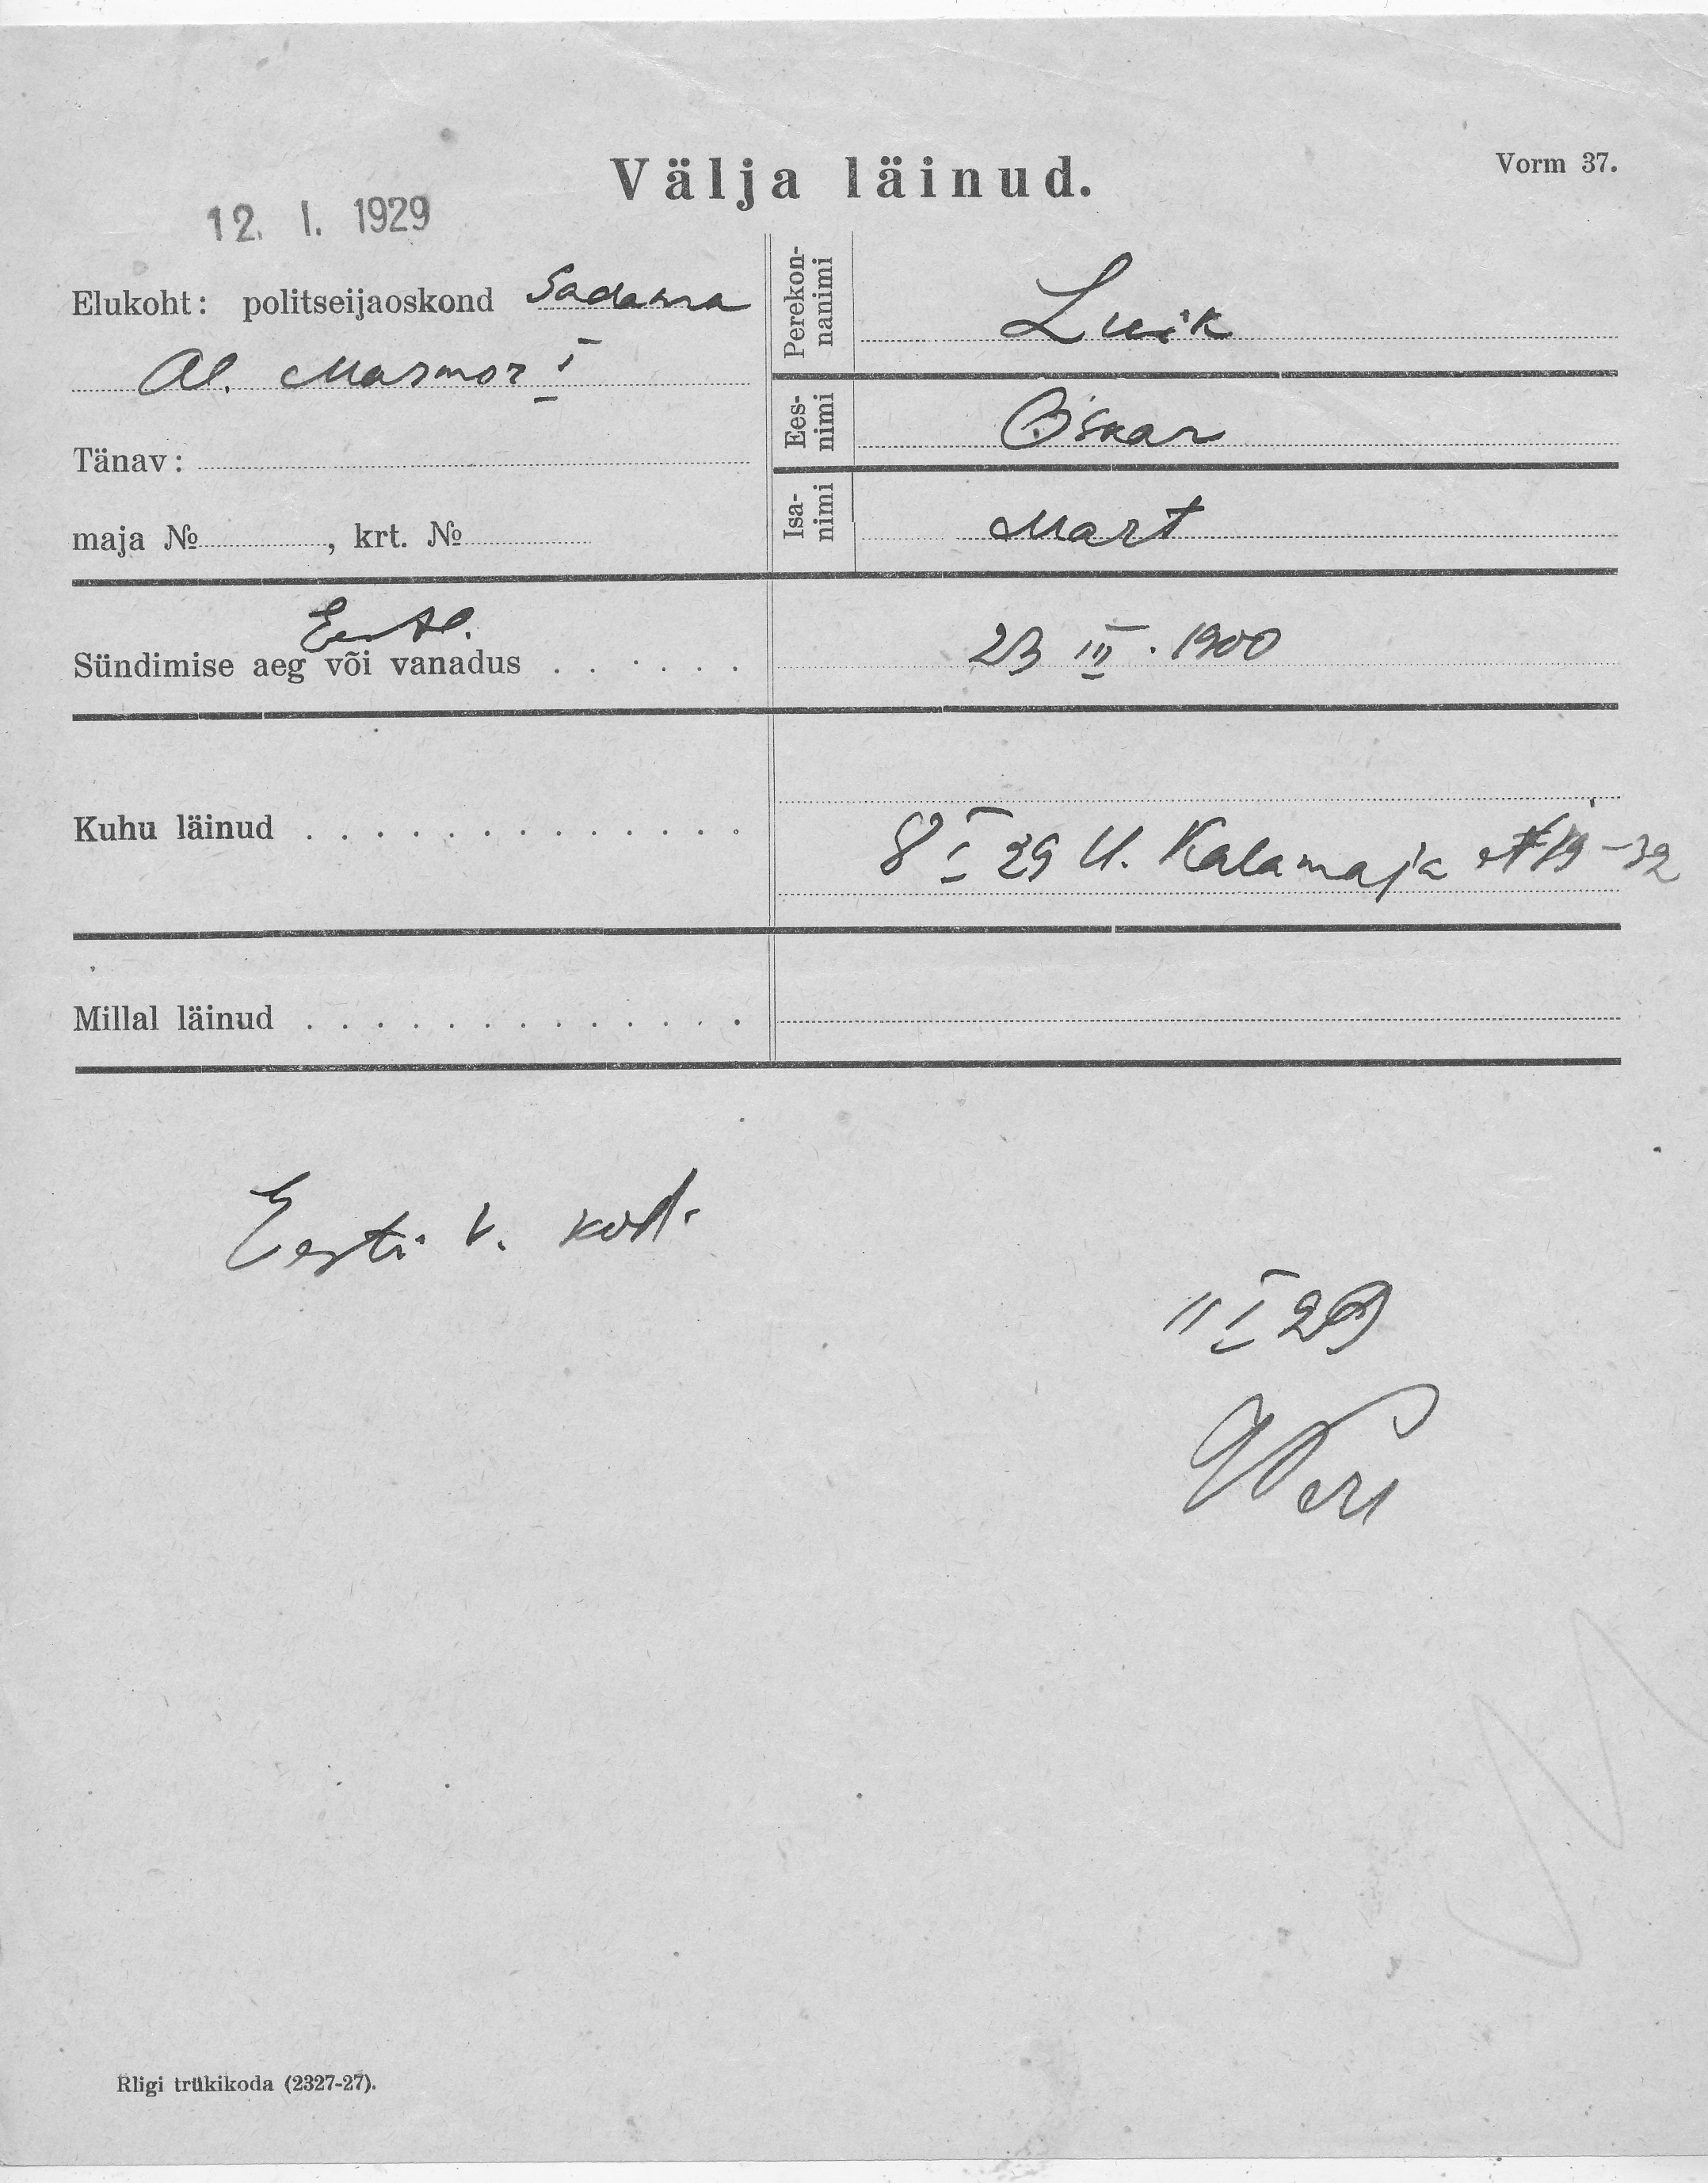 Vorm 37.
Välja läinud.
12. I. 1929
Elukoht: politseijaoskond Sadama
Al. Marmor I
Tänav:
maja № , krt. №
Perekonnanimi Luik
Eesnimi Oskar
Isanimi Mart
Eestl.
Sündimise aeg või vanadus . . . . . . 23 III. 1900
Kuhu läinud . . . . . . . . . . . . . 8 I 29 U. Kalamaja 19-32
Millal läinud . . . . . . . . . . . . .
Eesti v. kod.
11 I 29
Riigi trükikoda (2327-27).